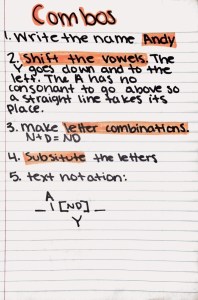 Combos
1. Write the name Andy
2. Shift the vowels. The
Y goes down and to the
left. The A has no
consonant to go above so
a straight line takes its
place.
3. Make letter combinations.
N+D = ND
4. Subsitute the letters
5. text notation:
A
_ | [ND] _
Y